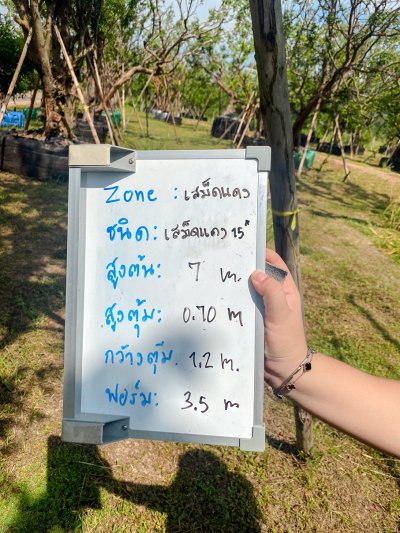 Zone : เสม็ดแดง
ชนิด: เสม็ดแดง 15"
สูงต้น: 7 m.
สูงตุ้ม: 0.70 m
กว้างตุ้ม. 1.2 m.
ฟอร์ม: 3.5 m